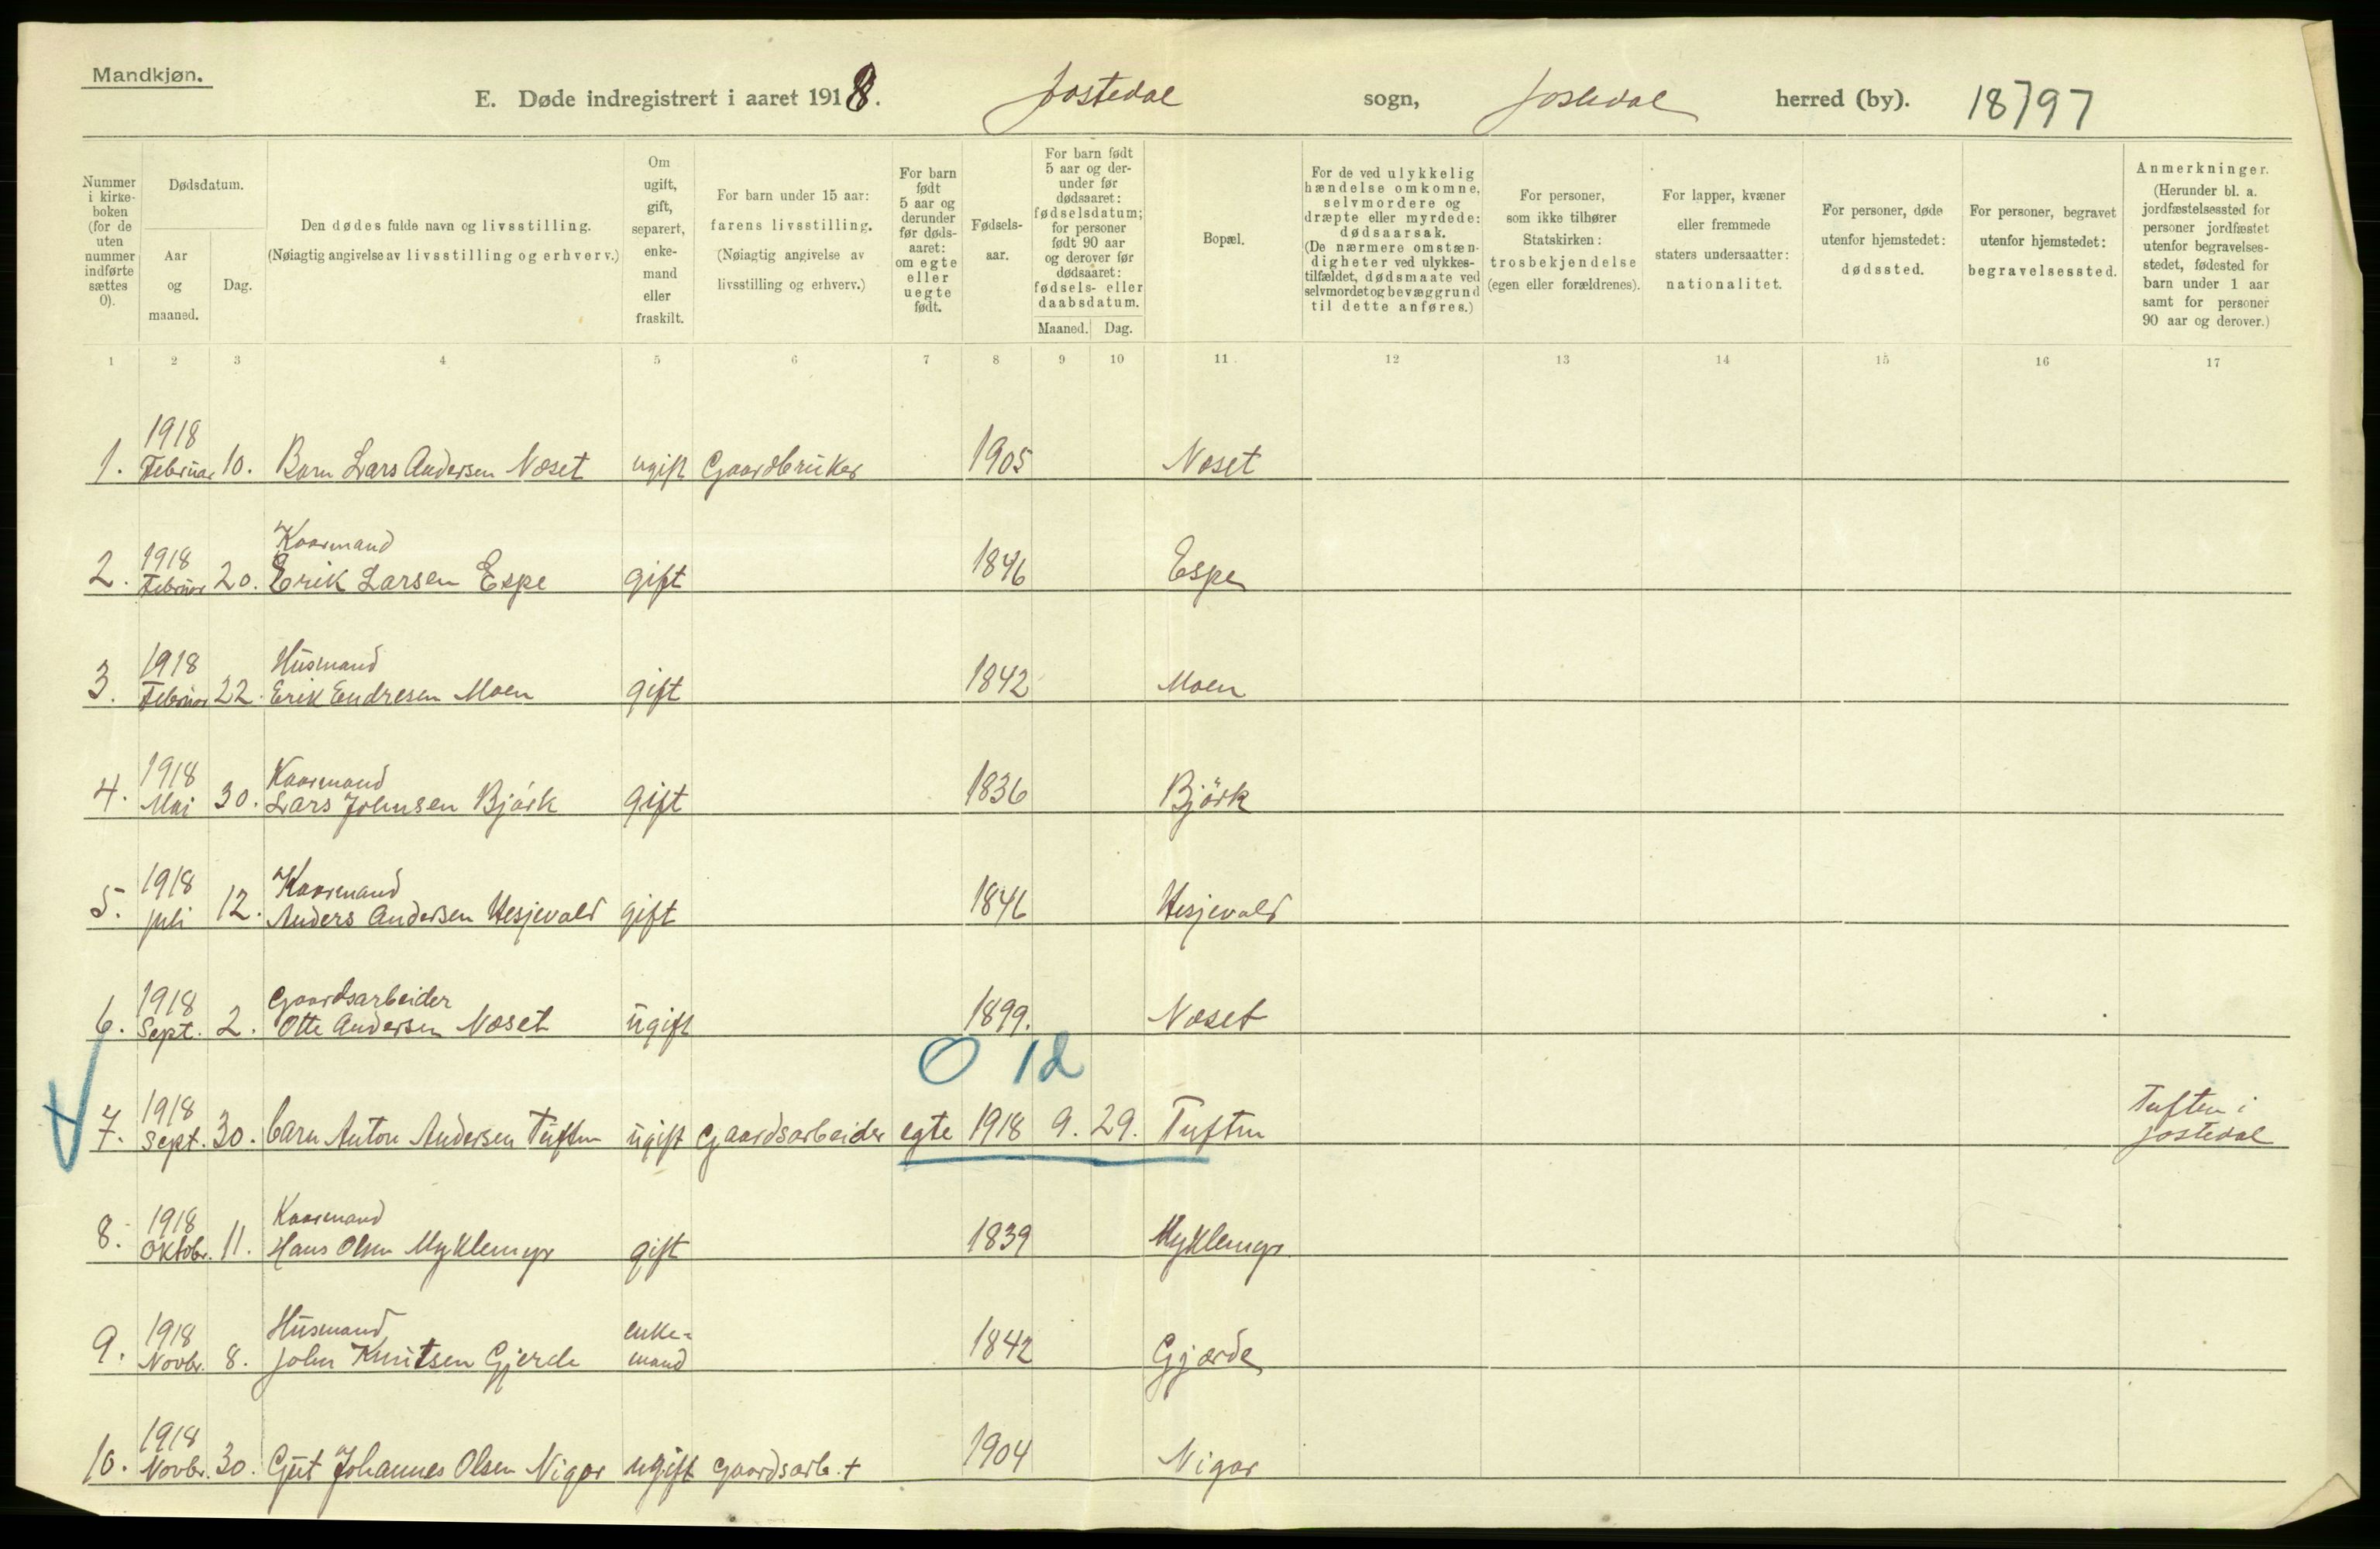 Mandkjøn.
E. Døde indregistrert i aaret 1918. Jostedal sogn, Jostedal herred (by). 18797
Nummer i kirke-boken (for de uten nummer indførte sættes 0).
Dødsdatum.
Aar og maaned.
Dag.
Den dødes fulde navn og livsstilling.
(Nøiagtig angivelse av livsstilling og erhverv.)
Om ugift, gift, separert, enke-mand eller fraskilt.
For barn under 15 aar: farens livsstilling.
(Nøiagtig angivelse av livsstilling og erhverv.)
For barn født 5 aar og derunder før døds-aaret: om egte eller uegte født.
Fødsels-aar.
For barn født 5 aar og der-under før dødsaaret: fødselsdatum; for personer født 90 aar og derover før dødsaaret: fødsels- eller daabsdatum.
Maaned. Dag.
Bopæl.
For de ved ulykkelig hændelse omkomne, selvmordere og dræpte eller myrdede: dødsaarsak.
(De nærmere omstæn-digheter ved ulykkes-tilfældet, dødsmaate ved selvmordet og bevæggrund til dette anføres.)
For personer, som ikke tilhører Statskirken: trosbekjendelse (egen eller forældrenes).
For lapper, kvæner eller fremmede staters undersaatter: nationalitet.
For personer, døde utenfor hjemstedet: dødssted.
For personer, begravet utenfor hjemstedet: begravelsessted.
Anmerkninger.
(Herunder bl. a. jordfæstelsessted for personer jordfæstet utenfor begravelses-stedet, fødested for barn under 1 aar samt for personer 90 aar og derover.)
1 2 3 4 5 6 7 8 9 10 11 12 13 14 15 16 17
1918
1. Februar 10. Barn Lars Andersen Næset ugift Gaardbruker 1905 Næset
1918 Kaarmand
2. Februar 20. Erik Larsen Espe gift 1846 Espe
1918 Husmand
3. Februar 22. Erik Endresen Moen gift 1842 Moen
1918 Kaarmand
4. Mai 30. Lars Johnsen Bjørk gift 1836 Björk
1918 Kaarmand
5. juli 12. Anders Andersen Hesjevold gift 1846 Hesjevold
1918 Gaardsarbeider
6. Sept. 2. Otte Andersen Næset ugift 1899. Næset
0 12
1918 Tuften i
7. Sept. 30. barn Anton Andersen Tuften ugift Gaardsarbeider egte 1918 9. 29. Tuften Jostedal
1918 Kaarmand
8. Oktobr. 11. Hans Olsen Myklemyr gift 1839 Myklemyr
1918 Husmand enke-
9. Novbr. 8. John Knutsen Gjerde mand 1842 Gjærde
1918
10. Novbr. 30. Gut Johannes Olsen Nigar ugift gaardsarb. + 1904 Nigar